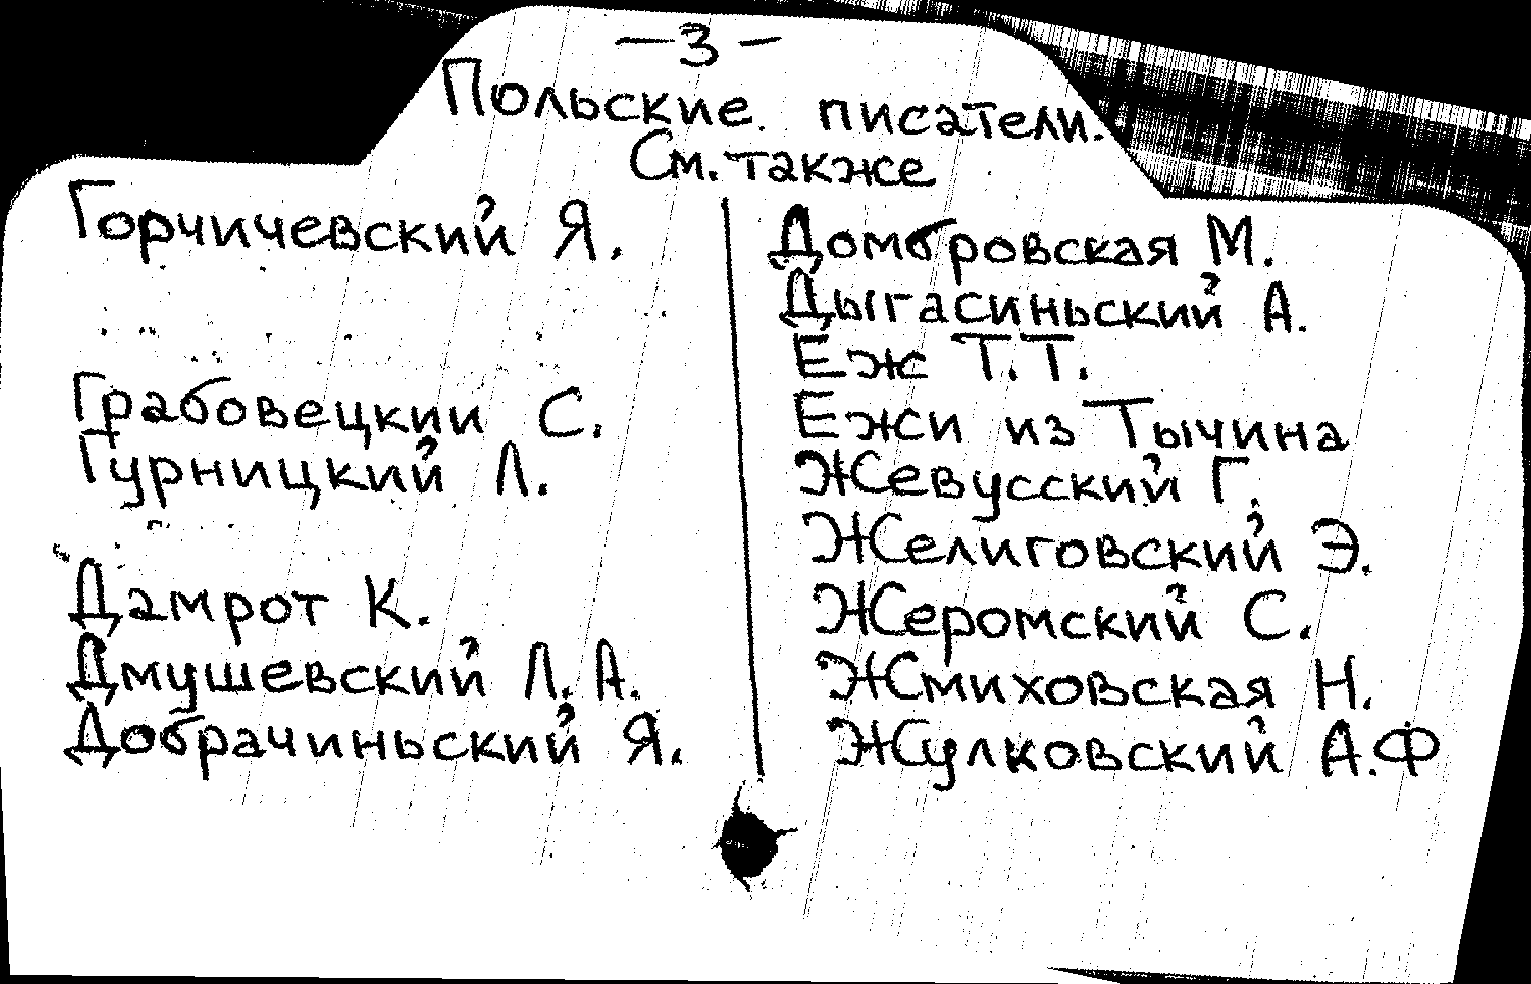 — 3 —
Польские писатели.
См. также
Горчичевский Я.
Грабовецкий С.
Гурницкий Л.
Дамрот К.
Дмушевский Л. А.
Добрачиньский Я.
Домбровская М.
Дыгасиньский А.
Еж Т.Т.
Ежи из Тычина
Жевусский Г.
Желиговский Э.
Жеромский С.
Жмиховская Н.
Жулковский А.Ф